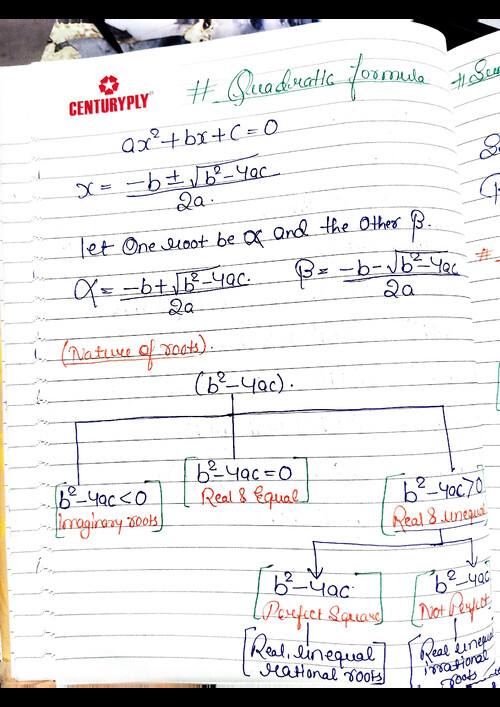 CENTURYPLY
# Quadratic formula
#
ax²+bx+c=0
x = -b ± √b²-4ac / 2a
let One root be α and the other β.
α = -b+√b²-4ac / 2a
β = -b-√b²-4ac / 2a
(Nature of roots).
(b²-4ac).
b²-4ac<0
Imaginary roots
b²-4ac=0
Real & Equal
b²-4ac>0
Real & Unequal
b²-4ac
Perfect Square
b²-4ac
Not Perfect
Real, unequal
rational roots
Real unequal
irrational
roots